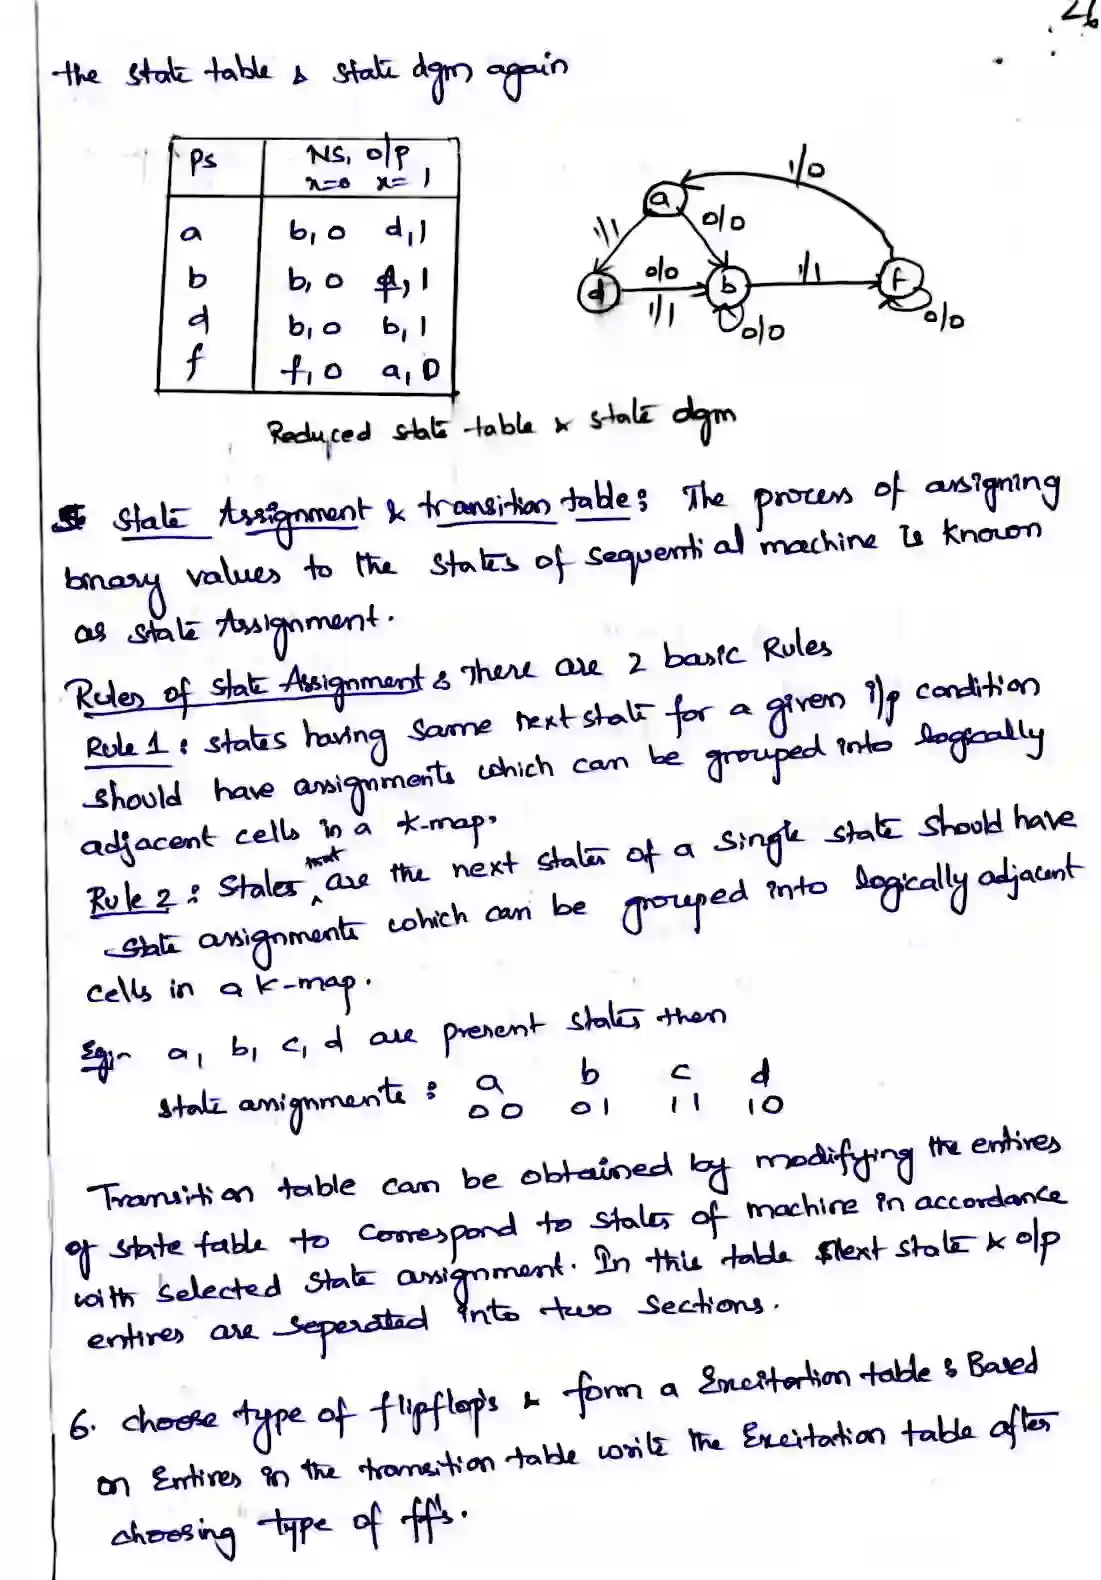 26
the state table & state dgm again
Ps NS, o/p
x=0 x=1
a b,0 d,1
b b,0 f,1
d b,0 b,1
f f,0 a,0
1/0
a
1/1 0/0
d 0/0 b 1/1 f
1/1 0/0 0/0
Reduced state table & state dgm
5 State Assignment & transition table: The process of assigning
binary values to the states of sequential machine is known
as state Assignment.
Rules of state Assignment: There are 2 basic Rules
Rule 1: states having same next state for a given i/p condition
should have assignments which can be grouped into logically
adjacent cells in a k-map.
Rule 2: States that are the next states of a single state should have
state assignments which can be grouped into logically adjacent
cells in a k-map.
Eg:- a, b, c, d are present states then
state assignments: a b c d
00 01 11 10
Transition table can be obtained by modifying the entires
of state table to correspond to states of machine in accordance
with selected state assignment. In this table Next state & o/p
entires are seperated into two sections.
6. choose type of flipflop's & form a Excitation table: Based
on Entires in the transition table write the Excitation table after
choosing type of ff's.